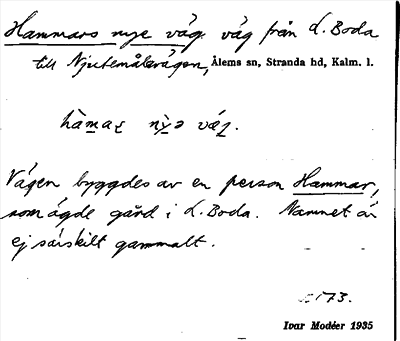 Hammars nye väg: väg från L. Boda
till Njutemålavägen, Ålems sn, Stranda hd, Kalm. l.
hàmaꞅ nỳə væ̀ɡ.
Vägen byggdes av en person Hammar,
som ägde gård i L. Boda. Namnet är
ej särskilt gammalt.
173.
Ivar Modéer 1935